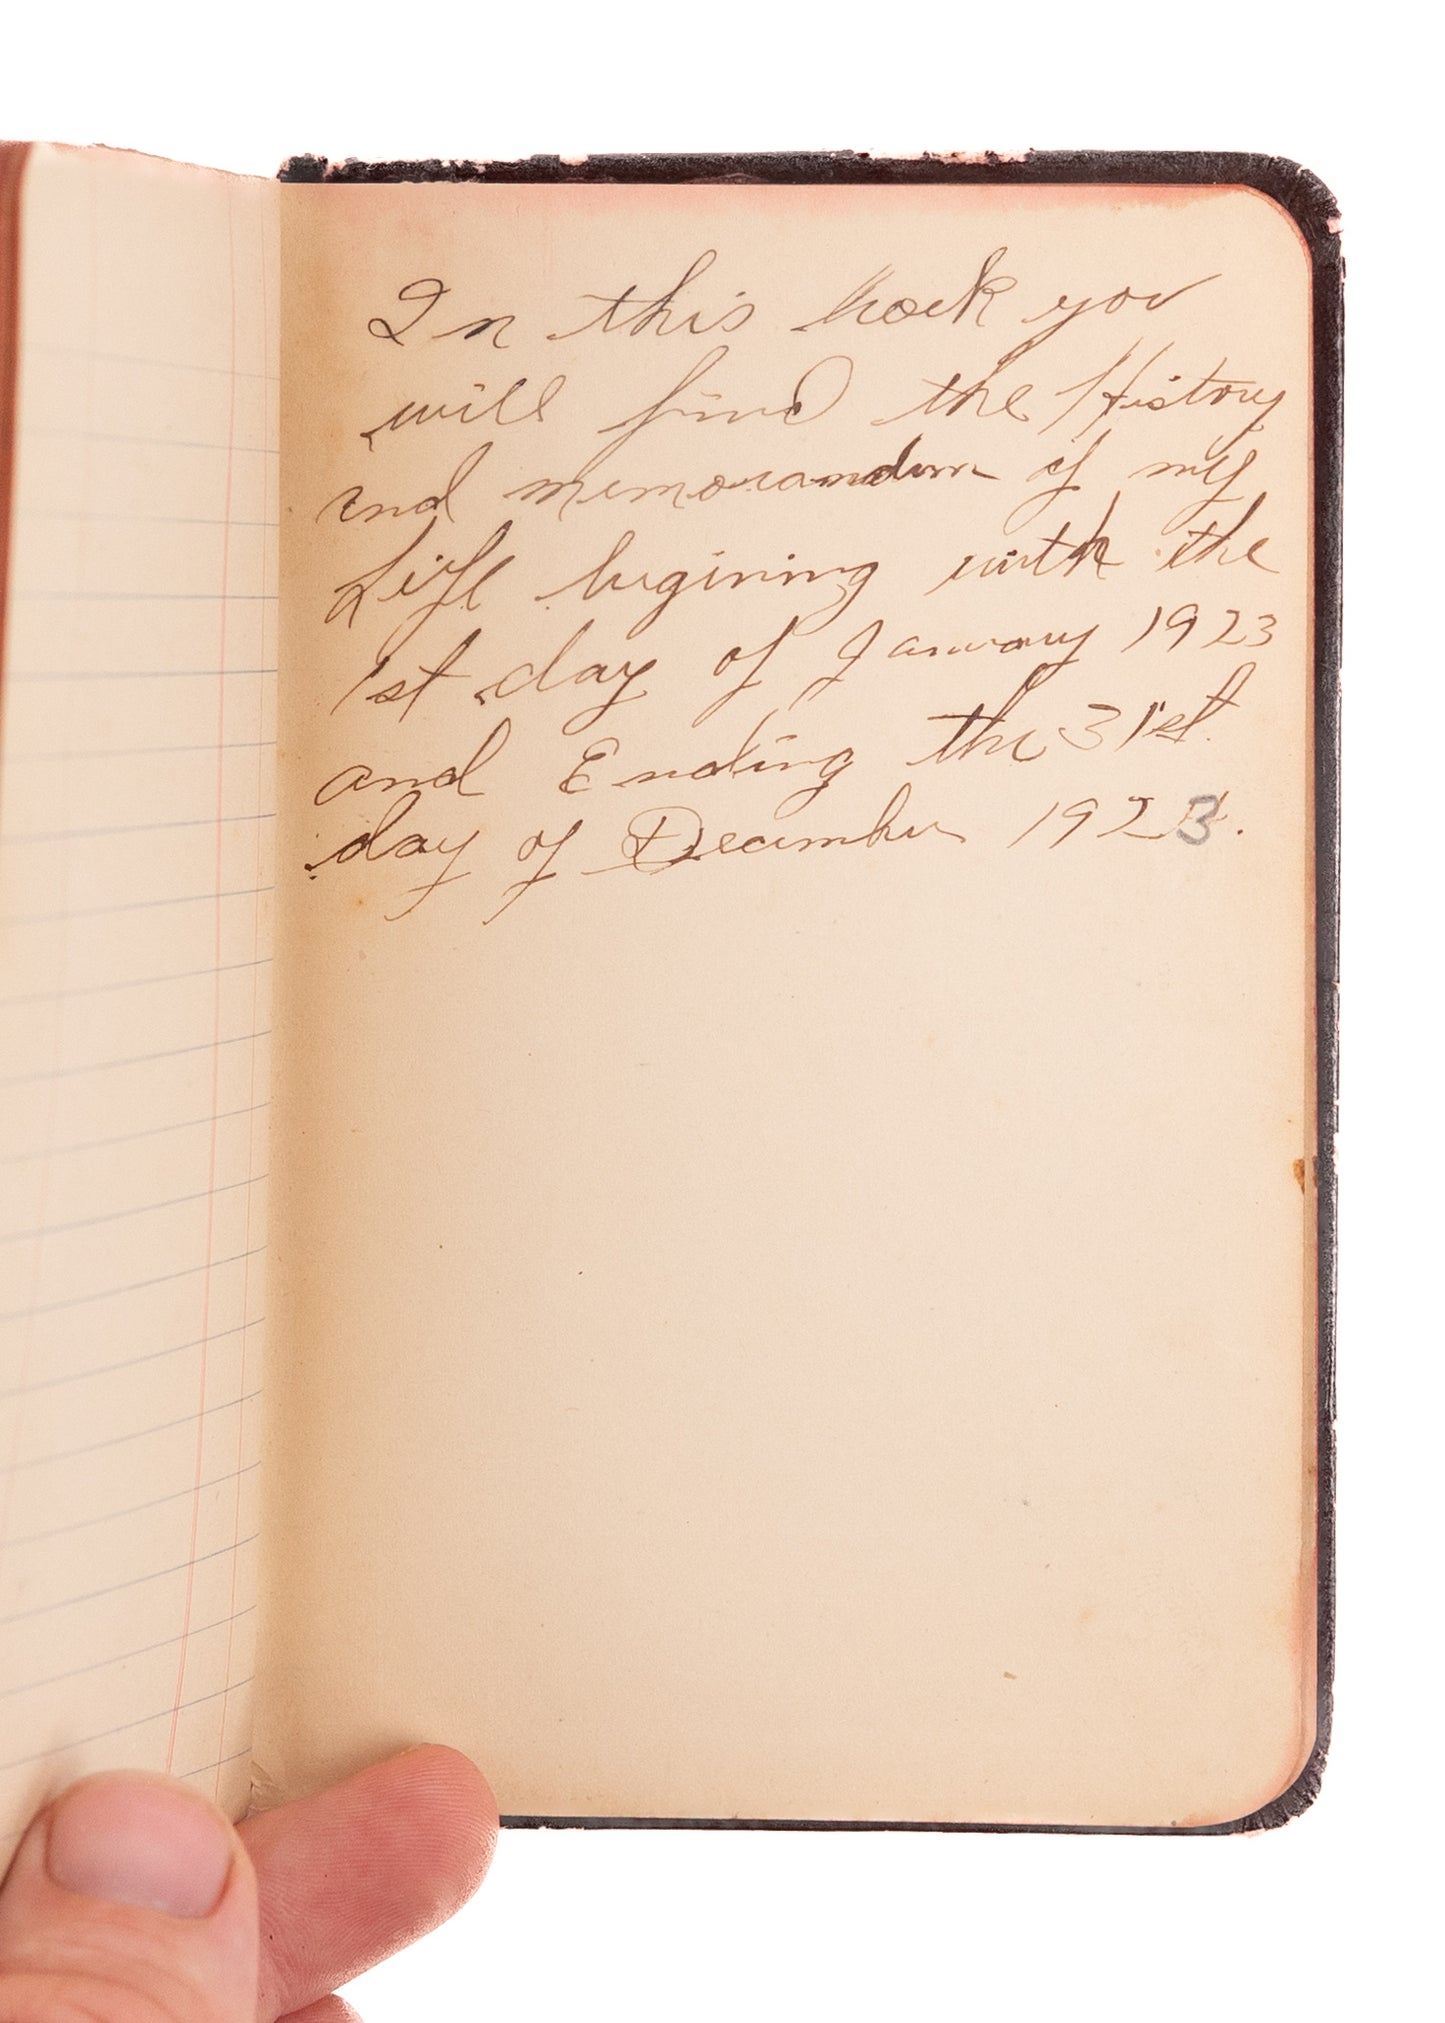 In this book you
will find the History
and memorandum of my
Life begining with the
1st day of January 1923
and Ending the 31st
day of December 1923.